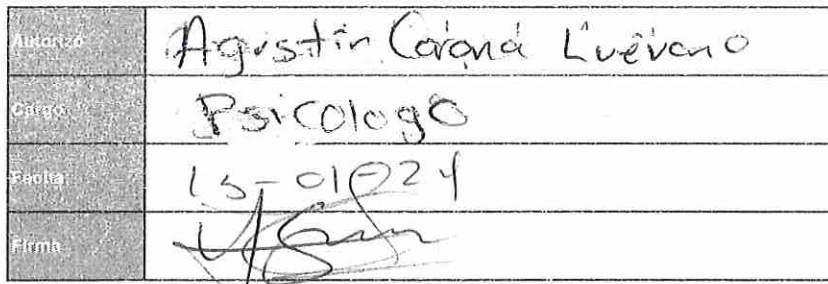 Autorizó Agustín Corona Luévano
Cargo: Psicologo
Fecha: 15-01-024
Firma